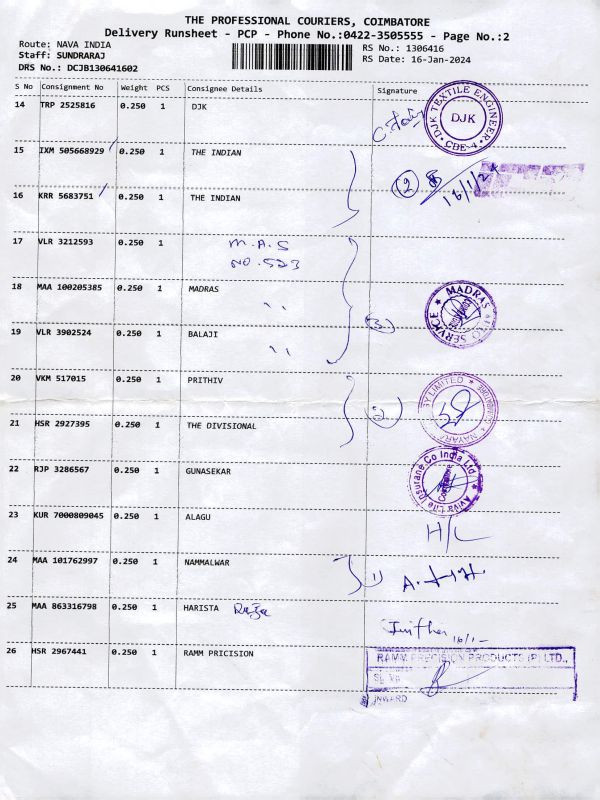 THE PROFESSIONAL COURIERS, COIMBATORE
Delivery Runsheet - PCP - Phone No.:0422-3505555 - Page No.:2
Route: NAVA INDIA
RS No.: 1306416
Staff: SUNDRARAJ
RS Date: 16-Jan-2024
DRS No.: DCJB130641602
S No Consignment No Weight PCS Consignee Details Signature
14 TRP 2525816 0.250 1 DJK
DJK TEXTILE ENGINEER
DJK
CBE-4
15 IXM 505668929 0.250 1 THE INDIAN
2
16/1/24
16 KRR 5683751 0.250 1 THE INDIAN
17 VLR 3212593 0.250 1 M.A.S
NO. 523
18 MAA 100205385 0.250 1 MADRAS
MADRAS
19 VLR 3902524 0.250 1 BALAJI
3
20 VKM 517015 0.250 1 PRITHIV
LIMITED
21 HSR 2927395 0.250 1 THE DIVISIONAL
2
22 RJP 3286567 0.250 1 GUNASEKAR
Aviva Life Insurane Co India Ltd
23 KUR 7000809045 0.250 1 ALAGU
H/L
24 MAA 101762997 0.250 1 NAMMALWAR
25 MAA 863316798 0.250 1 HARISTA Raja
16/1
26 HSR 2967441 0.250 1 RAMM PRICISION
RAMM PRECISION PRODUCTS (P) LTD.,
INWARD